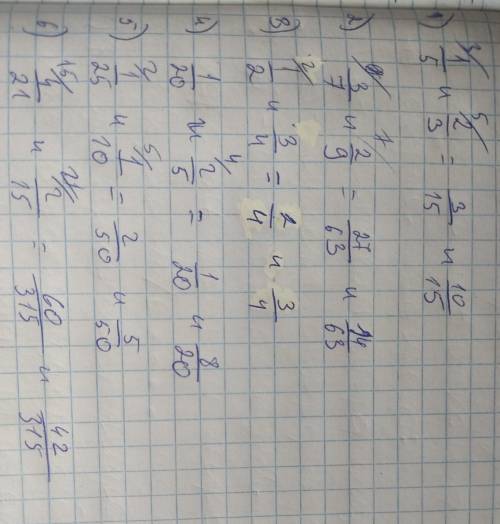 1) 3/ 1/5 и 5/ 2/3 = 3/15 и 10/15
2) 9/ 3/7 и 7/ 2/9 = 27/63 и 14/63
3) 2/ 1/2 и 3/4 = 2/4 и 3/4
4) 1/20 и 4/ 2/5 = 1/20 и 8/20
5) 2/ 1/25 и 5/ 1/10 = 2/50 и 5/50
6) 15/ 4/21 и 21/ 2/15 = 60/315 и 42/315